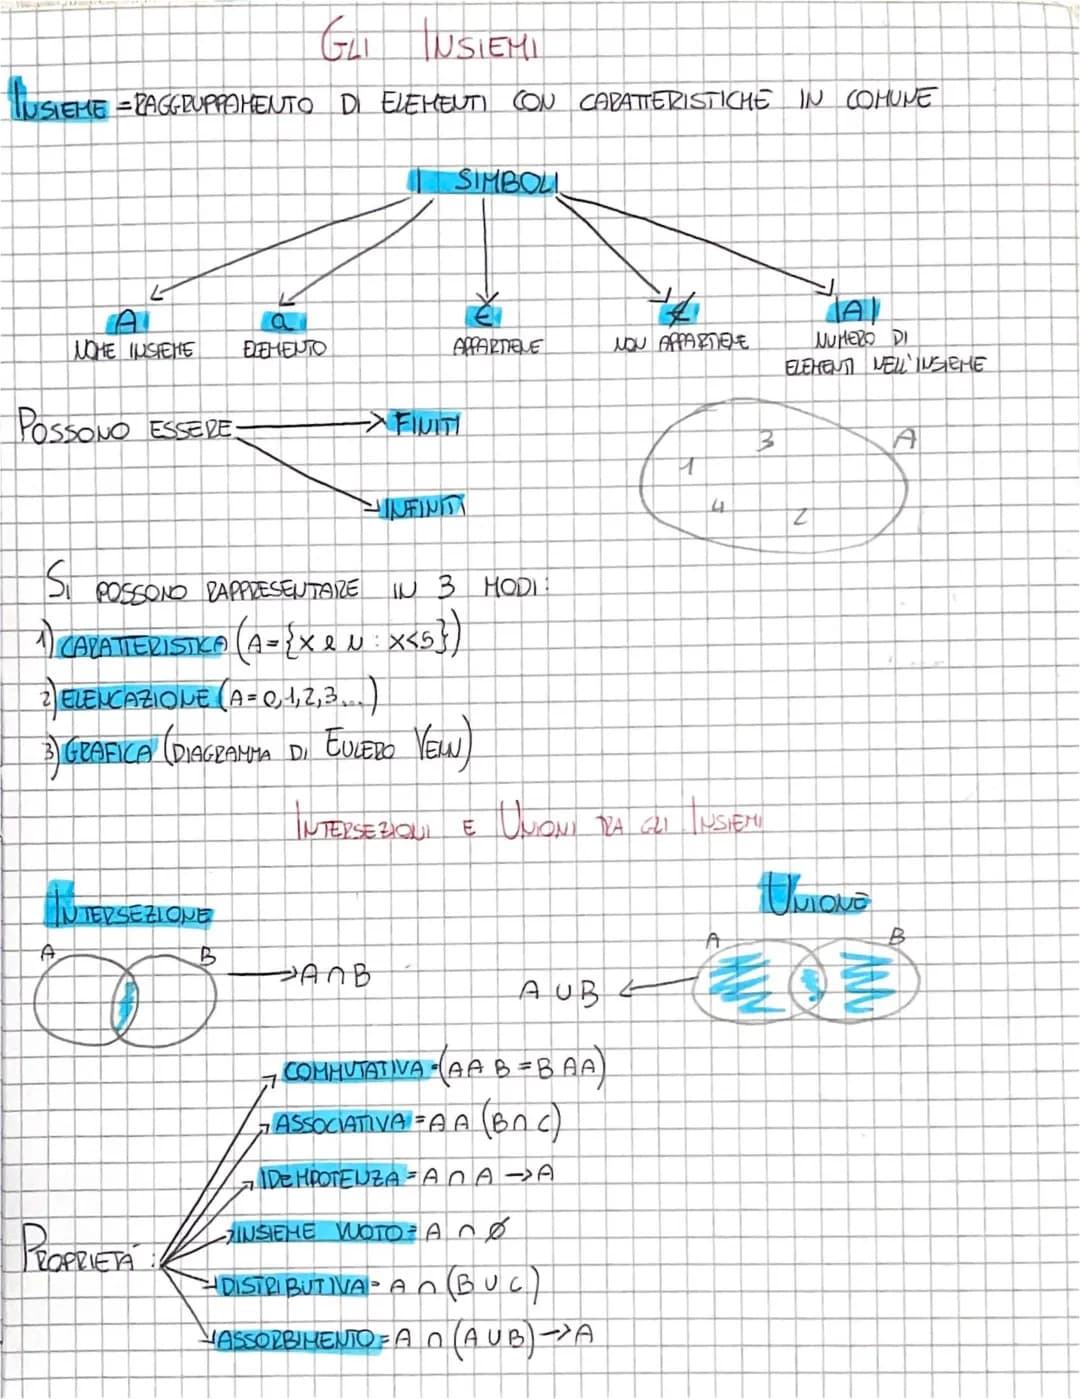 GLI INSIEMI
INSIEME = RAGGRUPPAMENTO DI ELEMENTI CON CARATTERISTICHE IN COMUNE
I SIMBOLI
A a ∈ ∉ |A|
NOME INSIEME ELEMENTO APPARTIENE NON APPARTIENE NUMERO DI
ELEMENTI NELL'INSIEME
POSSONO ESSERE → FINITI
INFINITI
A
3
1
4
2
SI POSSONO RAPPRESENTARE IN 3 MODI:
1) CARATTERISTICA (A={X e N : X<5})
2) ELENCAZIONE (A=0,1,2,3...)
3) GRAFICA (DIAGRAMMA DI EULERO VENN)
INTERSEZIONI E UNIONI TRA GLI INSIEMI
INTERSEZIONE
A B → A∩B
UNIONE
A B
A∪B ←
COMMUTATIVA=(A A B = B A A)
ASSOCIATIVA = A A (B∩C)
IDEMPOTENZA = A ∩ A → A
INSIEME VUOTO = A ∩ Ø
PROPRIETÀ:
DISTRIBUTIVA = A ∩ (B ∪ C)
ASSORBIMENTO = A ∩ (A ∪ B) → A